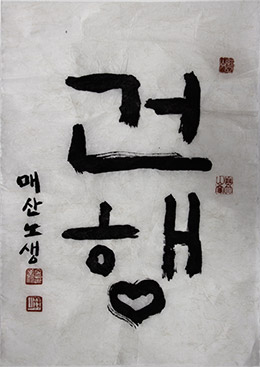 건
행
매산노생